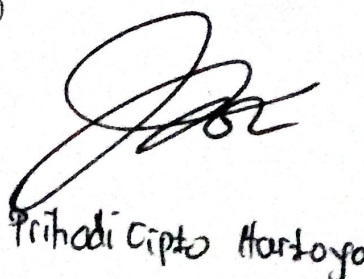 Prihadi Cipto Hartoyo